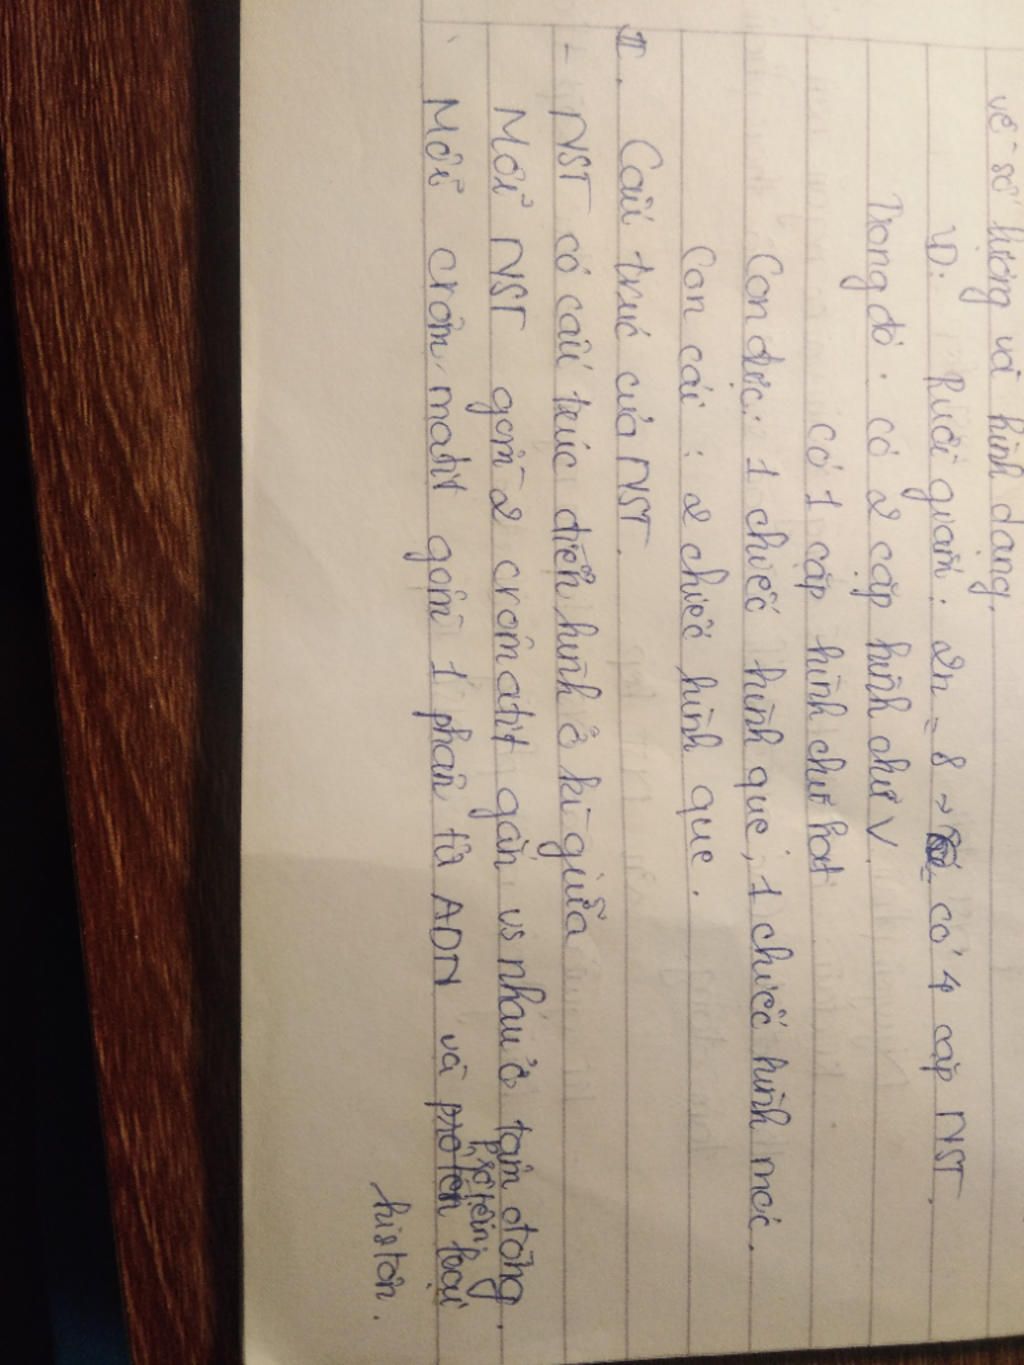 về số lượng và hình dạng.
VD: Ruồi giấm: 2n = 8 → có 4 cặp NST.
Trong đó: có 2 cặp hình chữ V.
có 1 cặp hình chư hạt
Con đực: 1 chiếc hình que, 1 chiếc hình móc.
Con cái: 2 chiếc hình que.
II. Cấu trúc của NST.
- NST có cấu trúc điển hình ở kì giữa
Mỗi NST gồm 2 crômatit gắn vs nhau ở tâm động.
Mỗi crômatit gồm 1 phân tử ADN và prôtêin loại
histon.